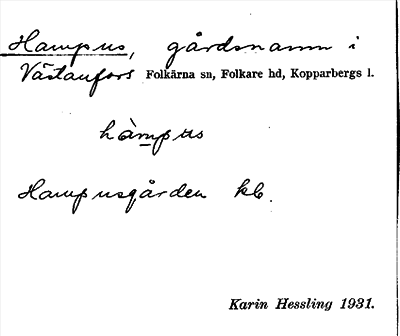 Hampus, gårdsnamn i
Västanfors Folkärna sn, Folkare hd, Kopparbergs l.
hàmpus
Hampusgården kb.
Karin Hessling 1931.